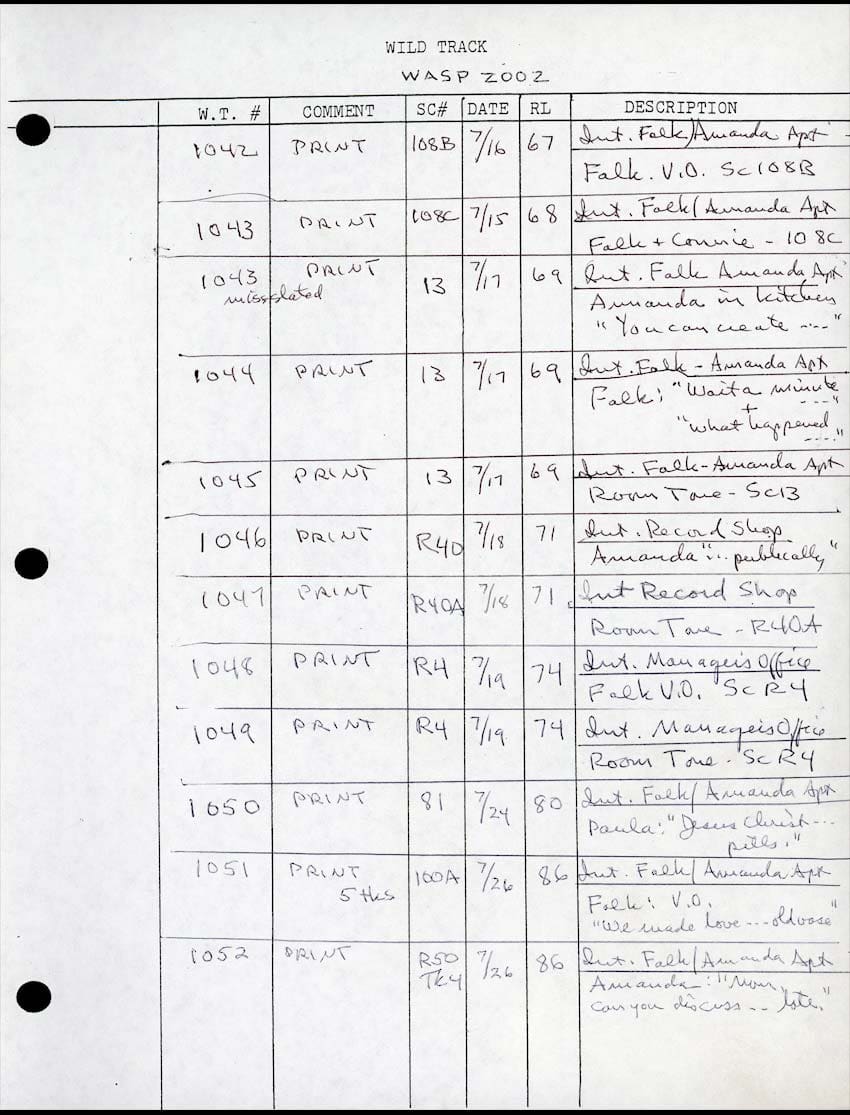 WILD TRACK
WASP 2002
W.T. # COMMENT SC# DATE RL DESCRIPTION
1042 PRINT 108B 7/16 67 Int. Falk/Amanda Apt
Falk. V.O. Sc108B
1043 PRINT 108C 7/15 68 Int. Falk/Amanda Apt
Falk + Connie - 108C
1043 PRINT 13 7/17 69 Int. Falk Amanda Apt
misslated Amanda in kitchen
"You can create ----"
1044 PRINT 13 7/17 69 Int. Falk - Amanda Apt
Falk: "Wait a minute ---"
+
"what happened ----"
1045 PRINT 13 7/17 69 Int. Falk-Amanda Apt
Room Tone - Sc13
1046 PRINT R40 7/18 71 Int. Record Shop
Amanda "... publically"
1047 PRINT R40A 7/18 71 Int Record Shop
Room Tone - R40A
1048 PRINT R4 7/19 74 Int. Manager's Office
Falk V.O. Sc R4
1049 PRINT R4 7/19 74 Int. Manager's Office
Room Tone - Sc R4
1050 PRINT 81 7/24 80 Int. Falk/Amanda Apt
Paula: "Jesus Christ ---
pills."
1051 PRINT 100A 7/26 86 Int. Falk/Amanda Apt
5 tks Falk: V.O.
"We made love ---"
1052 PRINT R50 7/26 86 Int. Falk/Amanda Apt
TK4 Amanda: "Mom,
can you discuss -- late."